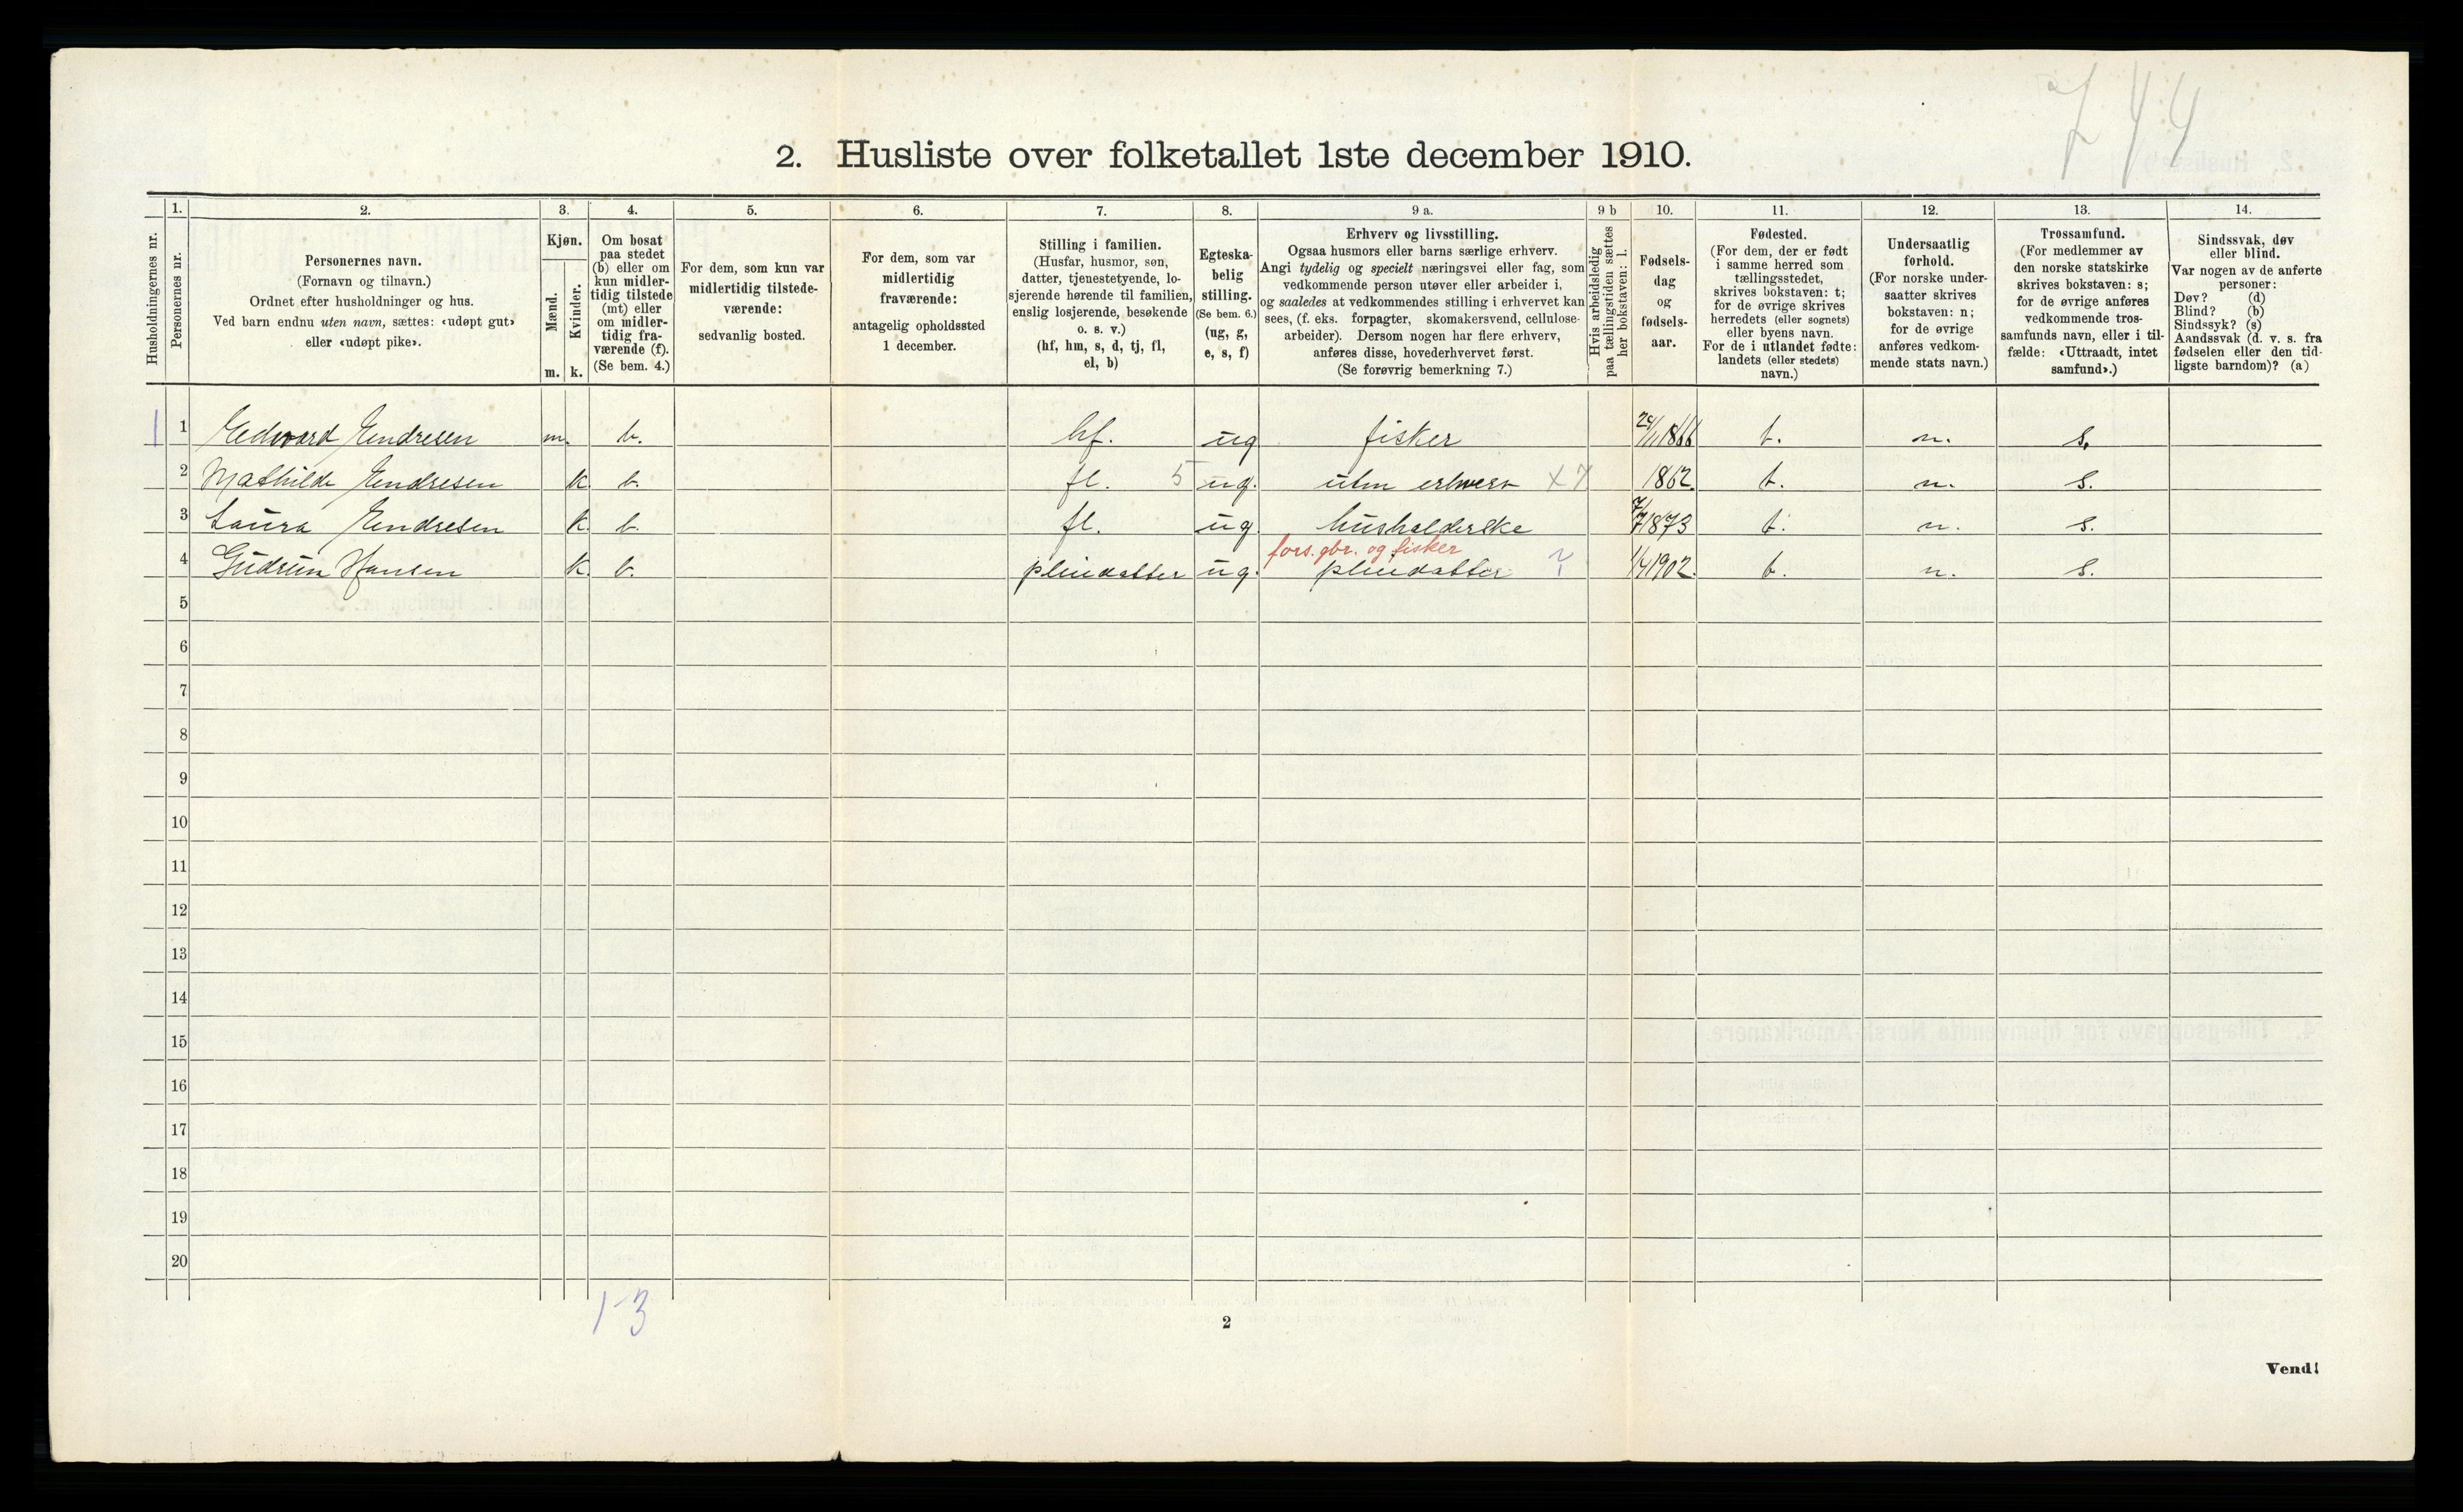 744
2. Husliste over folketallet 1ste december 1910.
1. 2. 3. 4. 5. 6. 7. 8. 9 a. 9 b 10. 11. 12. 13. 14.
Husholdningernes nr.
Personernes nr.
Personernes navn.
(Fornavn og tilnavn.)
Ordnet efter husholdninger og hus.
Ved barn endnu uten navn, sættes: «udøpt gut»
eller «udøpt pike».
Kjøn.
Mænd.
Kvinder.
m. k.
Om bosat
paa stedet
(b) eller om
kun midler-
tidig tilstede
(mt) eller
om midler-
tidig fra-
værende (f).
(Se bem. 4.)
For dem, som kun var
midlertidig tilstede-
værende:
sedvanlig bosted.
For dem, som var
midlertidig
fraværende:
antagelig opholdssted
1 december.
Stilling i familien.
(Husfar, husmor, søn,
datter, tjenestetyende, lo-
sjerende hørende til familien,
enslig losjerende, besøkende
o. s. v.)
(hf, hm, s, d, tj, fl,
el, b)
Egteska-
belig
stilling.
(Se bem. 6.)
(ug, g,
e, s, f)
Erhverv og livsstilling.
Ogsaa husmors eller barns særlige erhverv.
Angi tydelig og specielt næringsvei eller fag, som
vedkommende person utøver eller arbeider i,
og saaledes at vedkommendes stilling i erhvervet kan
sees, (f. eks. forpagter, skomakersvend, cellulose-
arbeider). Dersom nogen har flere erhverv,
anføres disse, hovederhvervet først.
(Se forøvrig bemerkning 7.)
Hvis arbeidsledig
paa tællingstiden sættes
her bokstaven: l.
Fødsels-
dag
og
fødsels-
aar.
Fødested.
(For dem, der er født
i samme herred som
tællingsstedet,
skrives bokstaven: t;
for de øvrige skrives
herredets (eller sognets)
eller byens navn.
For de i utlandet fødte:
landets (eller stedets)
navn.)
Undersaatlig
forhold.
(For norske under-
saatter skrives
bokstaven: n;
for de øvrige
anføres vedkom-
mende stats navn.)
Trossamfund.
(For medlemmer av
den norske statskirke
skrives bokstaven: s;
for de øvrige anføres
vedkommende tros-
samfunds navn, eller i til-
fælde: «Uttraadt, intet
samfund».)
Sindssvak, døv
eller blind.
Var nogen av de anførte
personer:
Døv? (d)
Blind? (b)
Sindssyk? (s)
Aandssvak (d. v. s. fra
fødselen eller den tid-
ligste barndom)? (a)
1 1 Edvard Endresen m. b. hf. ug fisker 1866 t. n. s.
2 Mathilde Endresen k. b. fl. 5 ug. uten erhverv x7 1862 t. n. s.
3 Laura Endresen k. b. fl. ug. husholderske 7/7 1873 t. n. s.
fors. gbr. og fisker
4 Gudrun Hansen k. b. pleiedatter ug. pleiedatter 1/4 1902. t. n. s.
5
6
7
8
9
10
11
12
13
14
15
16
17
18
19
20
1-3
2
Vend!